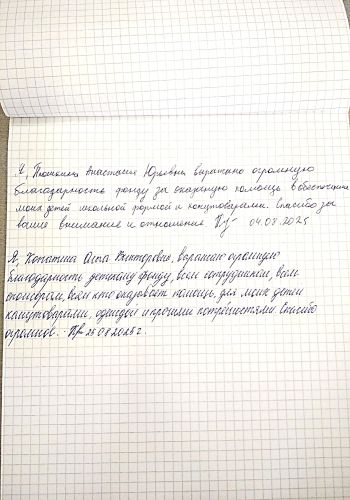 Я, Анастасия Юрьевна выражаю огромную
благодарность фонду за оказаную помощь в обеспечении
моих детей школьной формой и концтоварами. Спасибо за
ваше внимание и отношение. 04.08.2025
Я, Копытина Ольга Викторовна, выражаю огромную
благодарность детскому фонду, всем сотрудникам, всем
спонсорам, всем кто оказывает помощь, для моих детей
канцтоварами, одеждой и прочими потребностями. Спасибо
огромное. 28.08.2025 г.